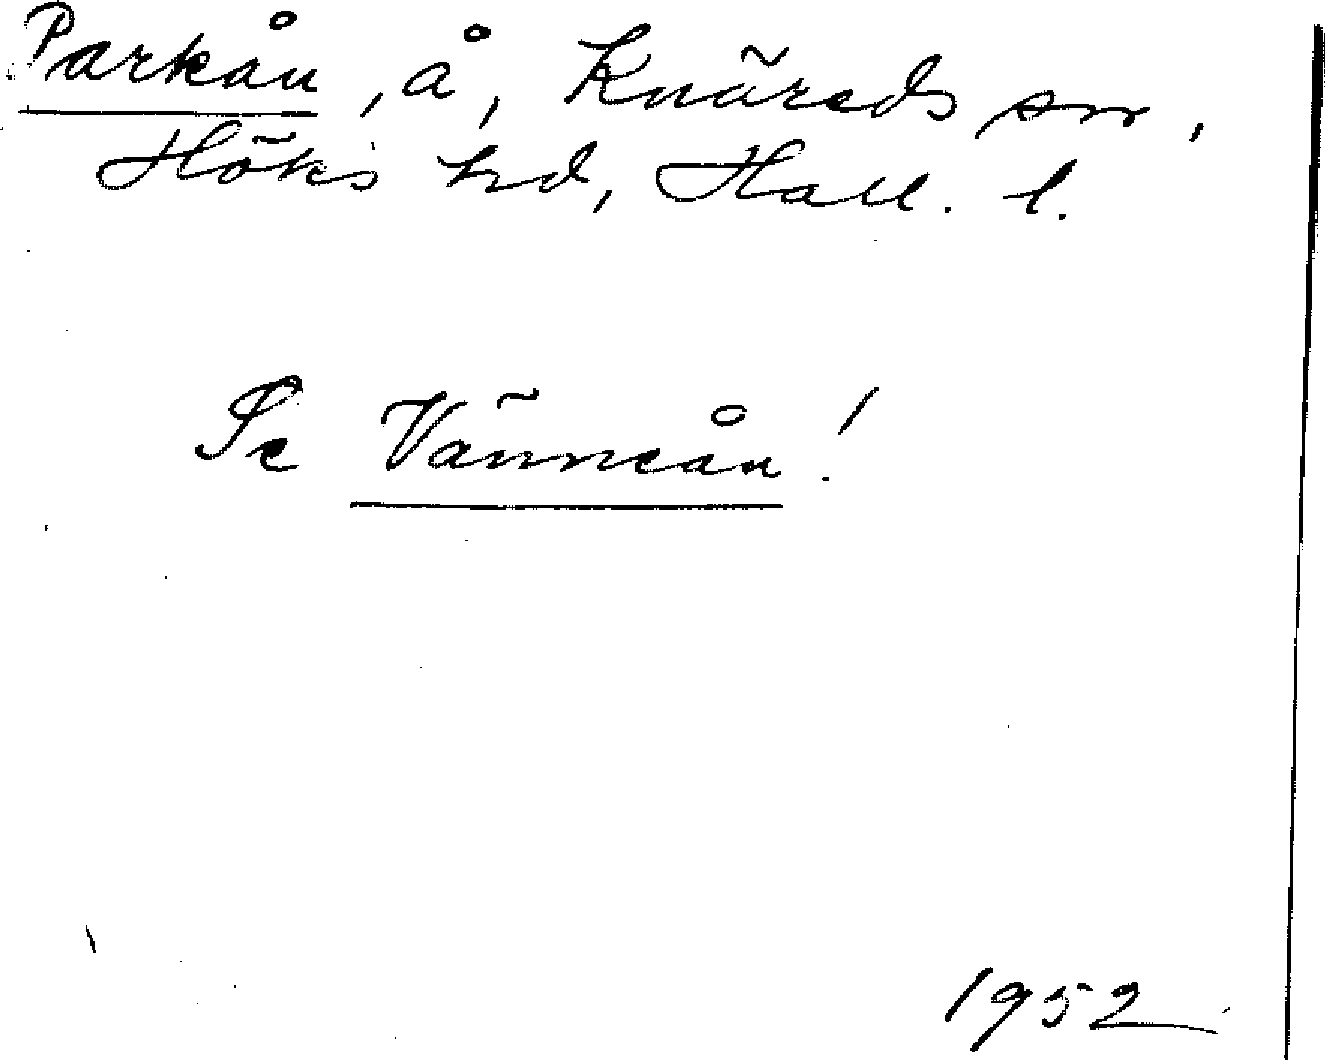 Parkån, å, Knäreds sn,
Höks hd, Hall. l.
Se Vänneån!
1952